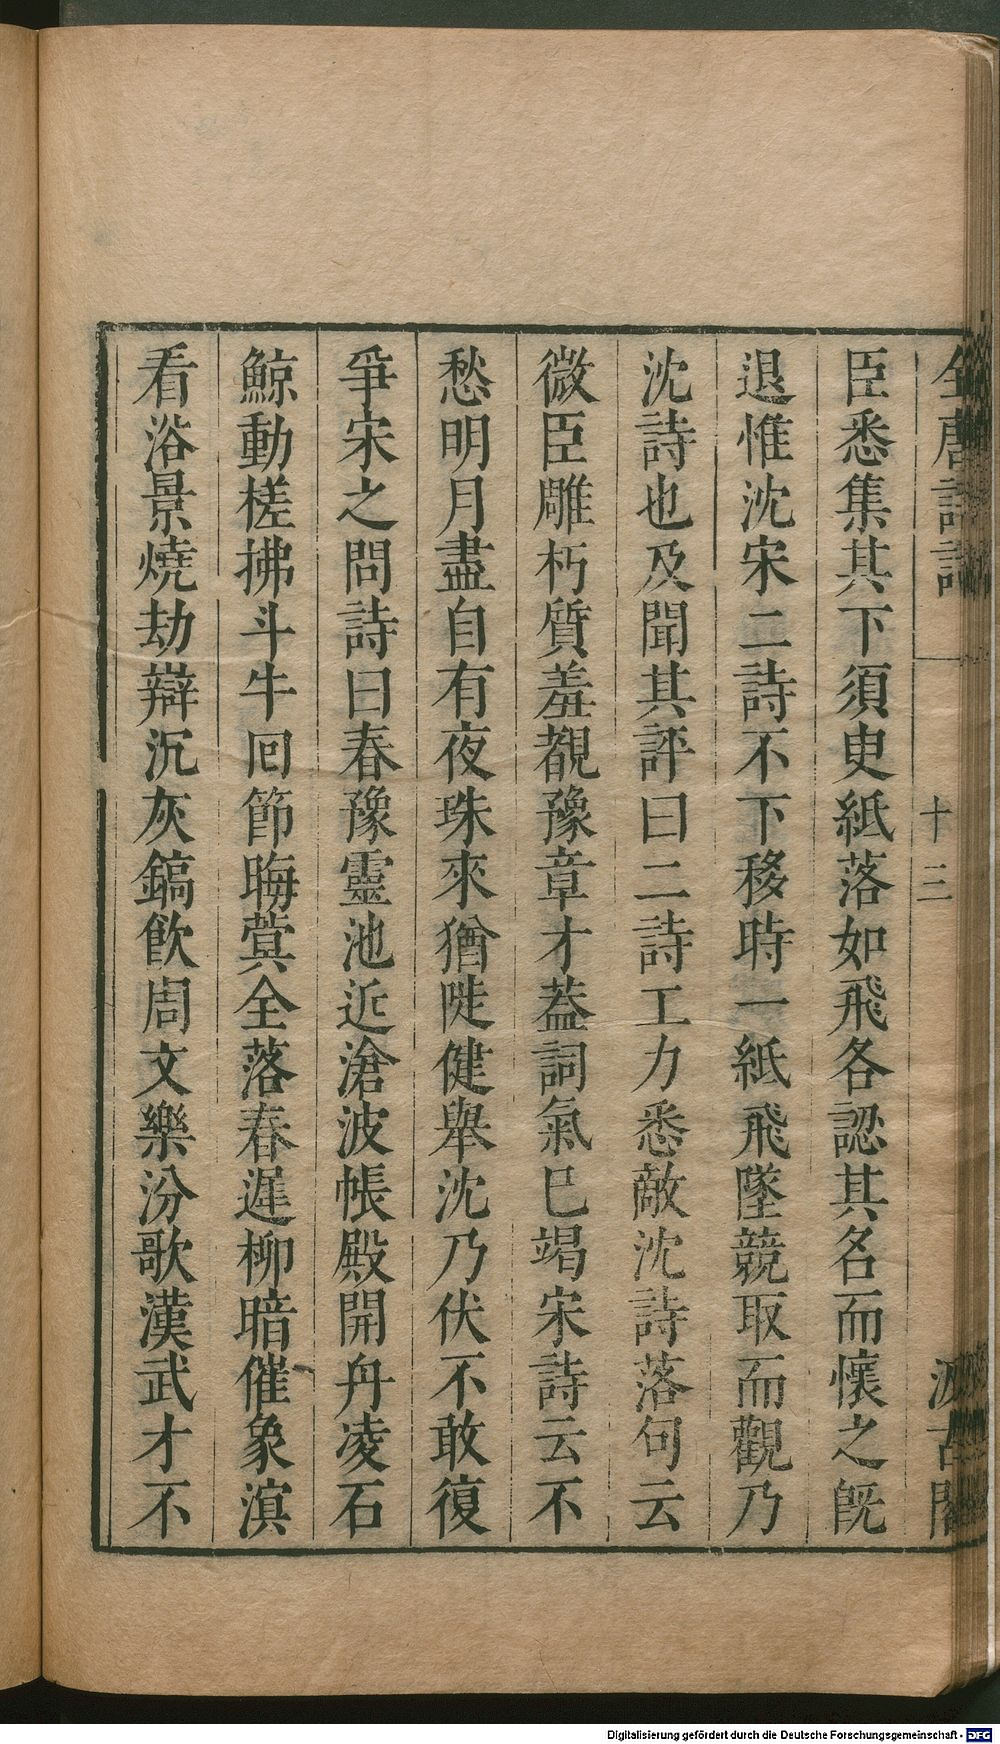 全唐詩話
十三
汲古閣
臣悉集其下須臾紙落如飛各認其名而懷之旣
退惟沈宋二詩不下移時一紙飛墜競取而觀乃
沈詩也及聞其評曰二詩工力悉敵沈詩落句云
微臣雕朽質羞覩豫章才蓋詞氣已竭宋詩云不
愁明月盡自有夜珠來猶陡健舉沈乃伏不敢復
爭宋之問詩曰春豫靈池近滄波帳殿開舟凌石
鯨動槎拂斗牛回節晦蓂全落春遲柳暗催象溟
看浴景燒劫辯沉灰鎬飲周文樂汾歌漢武才不
Digitalisierung gefördert durch die Deutsche Forschungsgemeinschaft - DFG